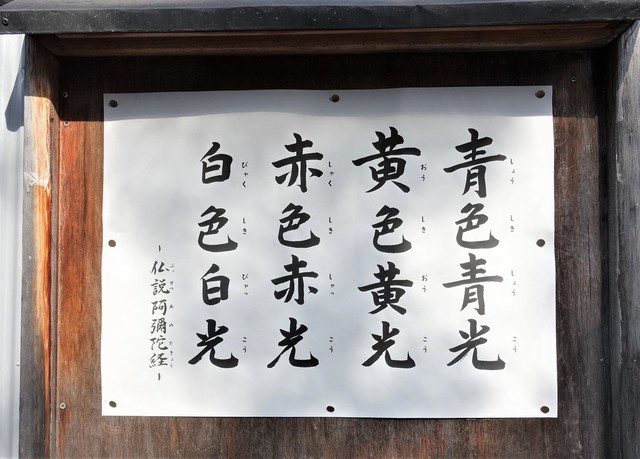 青色青光
しょう しき しょう こう
黄色黄光
おう しき おう こう
赤色赤光
しゃく しき しゃっ こう
白色白光
びゃく しき びゃっ こう
～仏説阿彌陀経～
ぶっ せつ あ み だ きょう